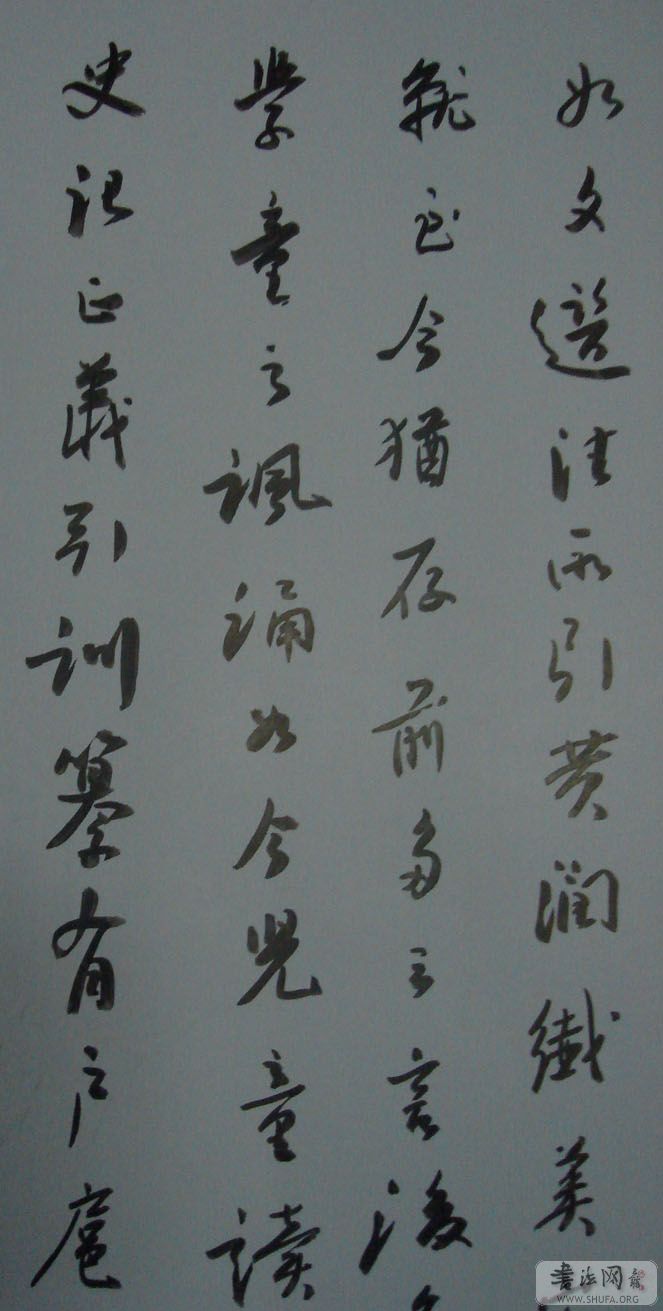 如文選注所引黃潤纖美
就至今猶存前多三言後
學童之諷誦如今兒童讀
史記正義引訓纂有户扈
書法网
WWW.SHUFA.ORG